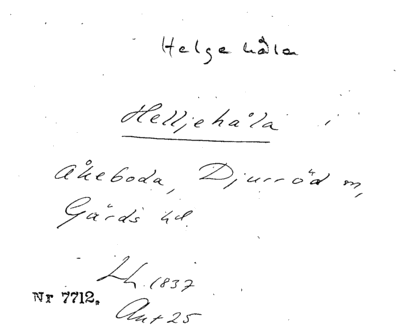 Helgehåla
Helljehåla i
Åkeboda, Djurröd m,
Gärds hd.
Lh. 1837
Nr 7712,
Ant 25